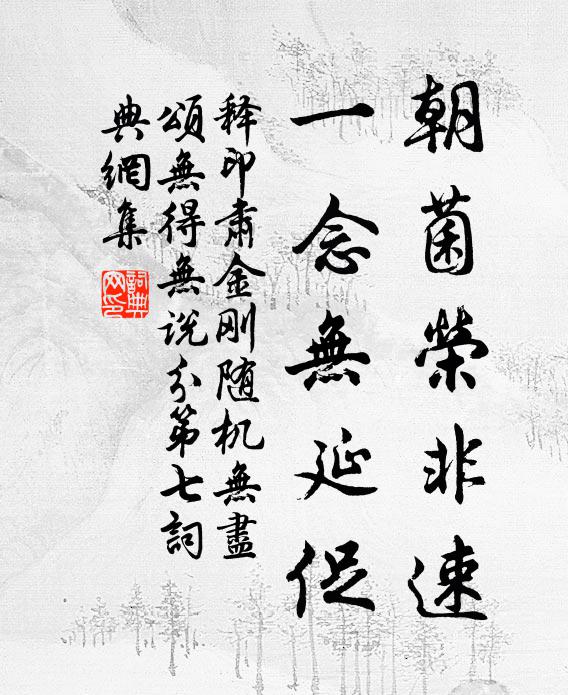 朝菌榮非速
一念無延促
释印肃金刚随机無盡
頌無得無说分第七詞
典網集
詞典網印